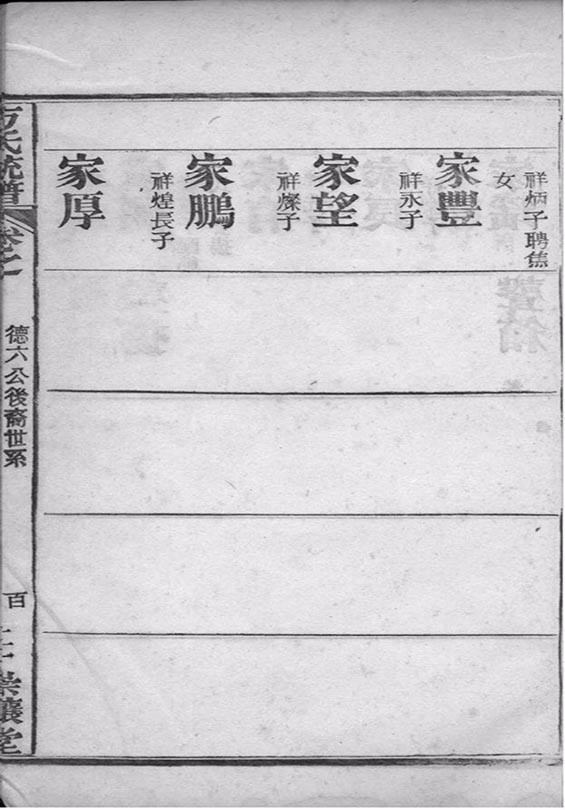 祥炳子聘焦
女
家豐
祥永子
家望
祥燦子
家鵬
祥煌長子
家厚
方氏統譜
卷之
德六公後裔世系
百
讓堂